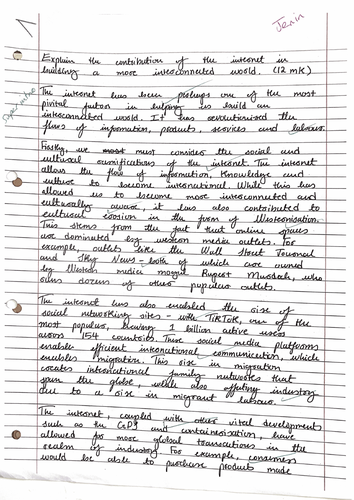 Jenin
Explain the contribution of the internet in
building a more interconnected world. (12 mk)
The internet has been perhaps one of the most
pivital factors in helping us build an
interconnected world. It has revolutionised the
flows of information, products, services and labour.
Firstly, we must must consider the social and
cultural ramifications of the internet. The internet
allows the flow of information, knowledge and
culture to become international. While this has
allowed us to become more interconnected and
culturally aware it has also contributed to
cultural erosion in the form of Westernisation.
This stems from the fact that online spaces
are dominated by western media outlets. For
example, outlets like the Wall Street Journal
and Sky News - both of which are owned
by Western media mogul Rupert Murdoch, who
owns dozens of other populer outlets.
The internet has also enabled the rise of
social networking sites - with TikTok, one of the
most populer, having 1 billion active users
across 154 countries. These social media platforms
enable efficient international communication, which
enables migration. This rise in migration
creates international family networks that
span the globe, while also effecting industry
due to a rise in migrant labour.
The internet, coupled with other vital developments
such as the GPS and containerisation, have
allowed for more global transactions in the
realm of industry. For example, consumers
would be able to purchase products made